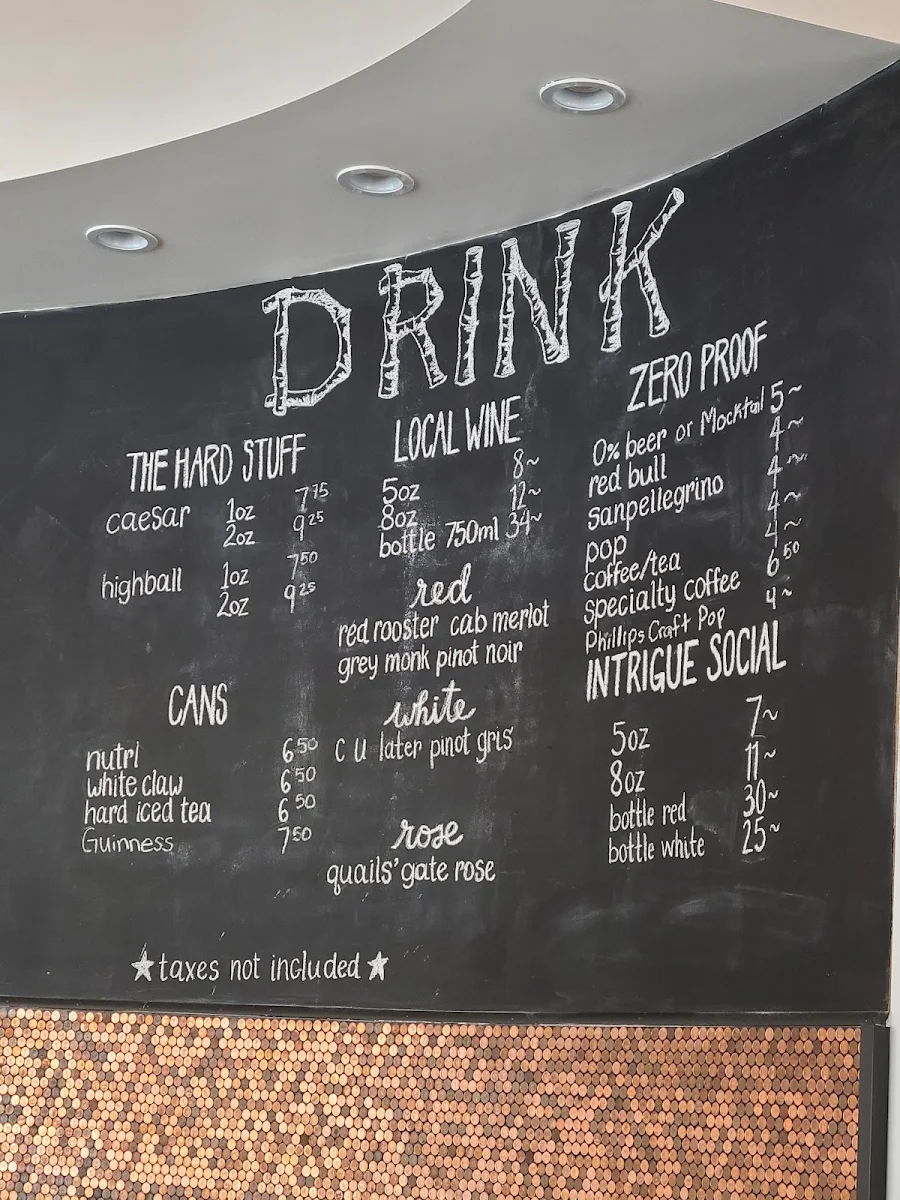 DRINK
THE HARD STUFF
caesar 1oz 7 75
2oz 9 25
highball 1oz 7 50
2oz 9 25
CANS
nutrl 6 50
white claw 6 50
hard iced tea 6 50
Guinness 7 50
LOCAL WINE
5oz 8~
8oz 12~
bottle 750ml 34~
red
red rooster cab merlot
grey monk pinot noir
white
C U later pinot gris
rose
quails' gate rose
ZERO PROOF
0% beer or Mocktail 5~
red bull 4~
sanpellegrino 4~
pop 4~
coffee/tea 4~
specialty coffee 6 50
Phillips Craft Pop 4~
INTRIGUE SOCIAL
5oz 7~
8oz 11~
bottle red 30~
bottle white 25~
★taxes not included★